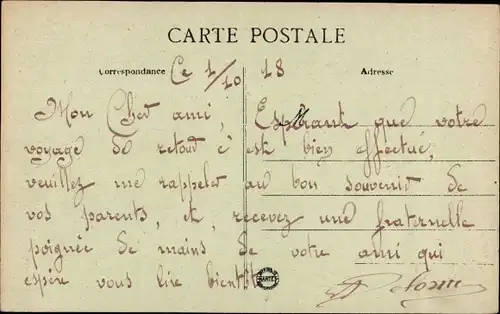 CARTE POSTALE
Correspondance Ce 1/10 18 Adresse
Mon Cher ami, Espérant que votre
voyage de retour c'est bien effectué,
veuillez me rappeler au bon souvenir de
vos parents, et, recevez une fraternelle
poignée de mains de votre ami qui
espère vous lire bientôt
NANTES